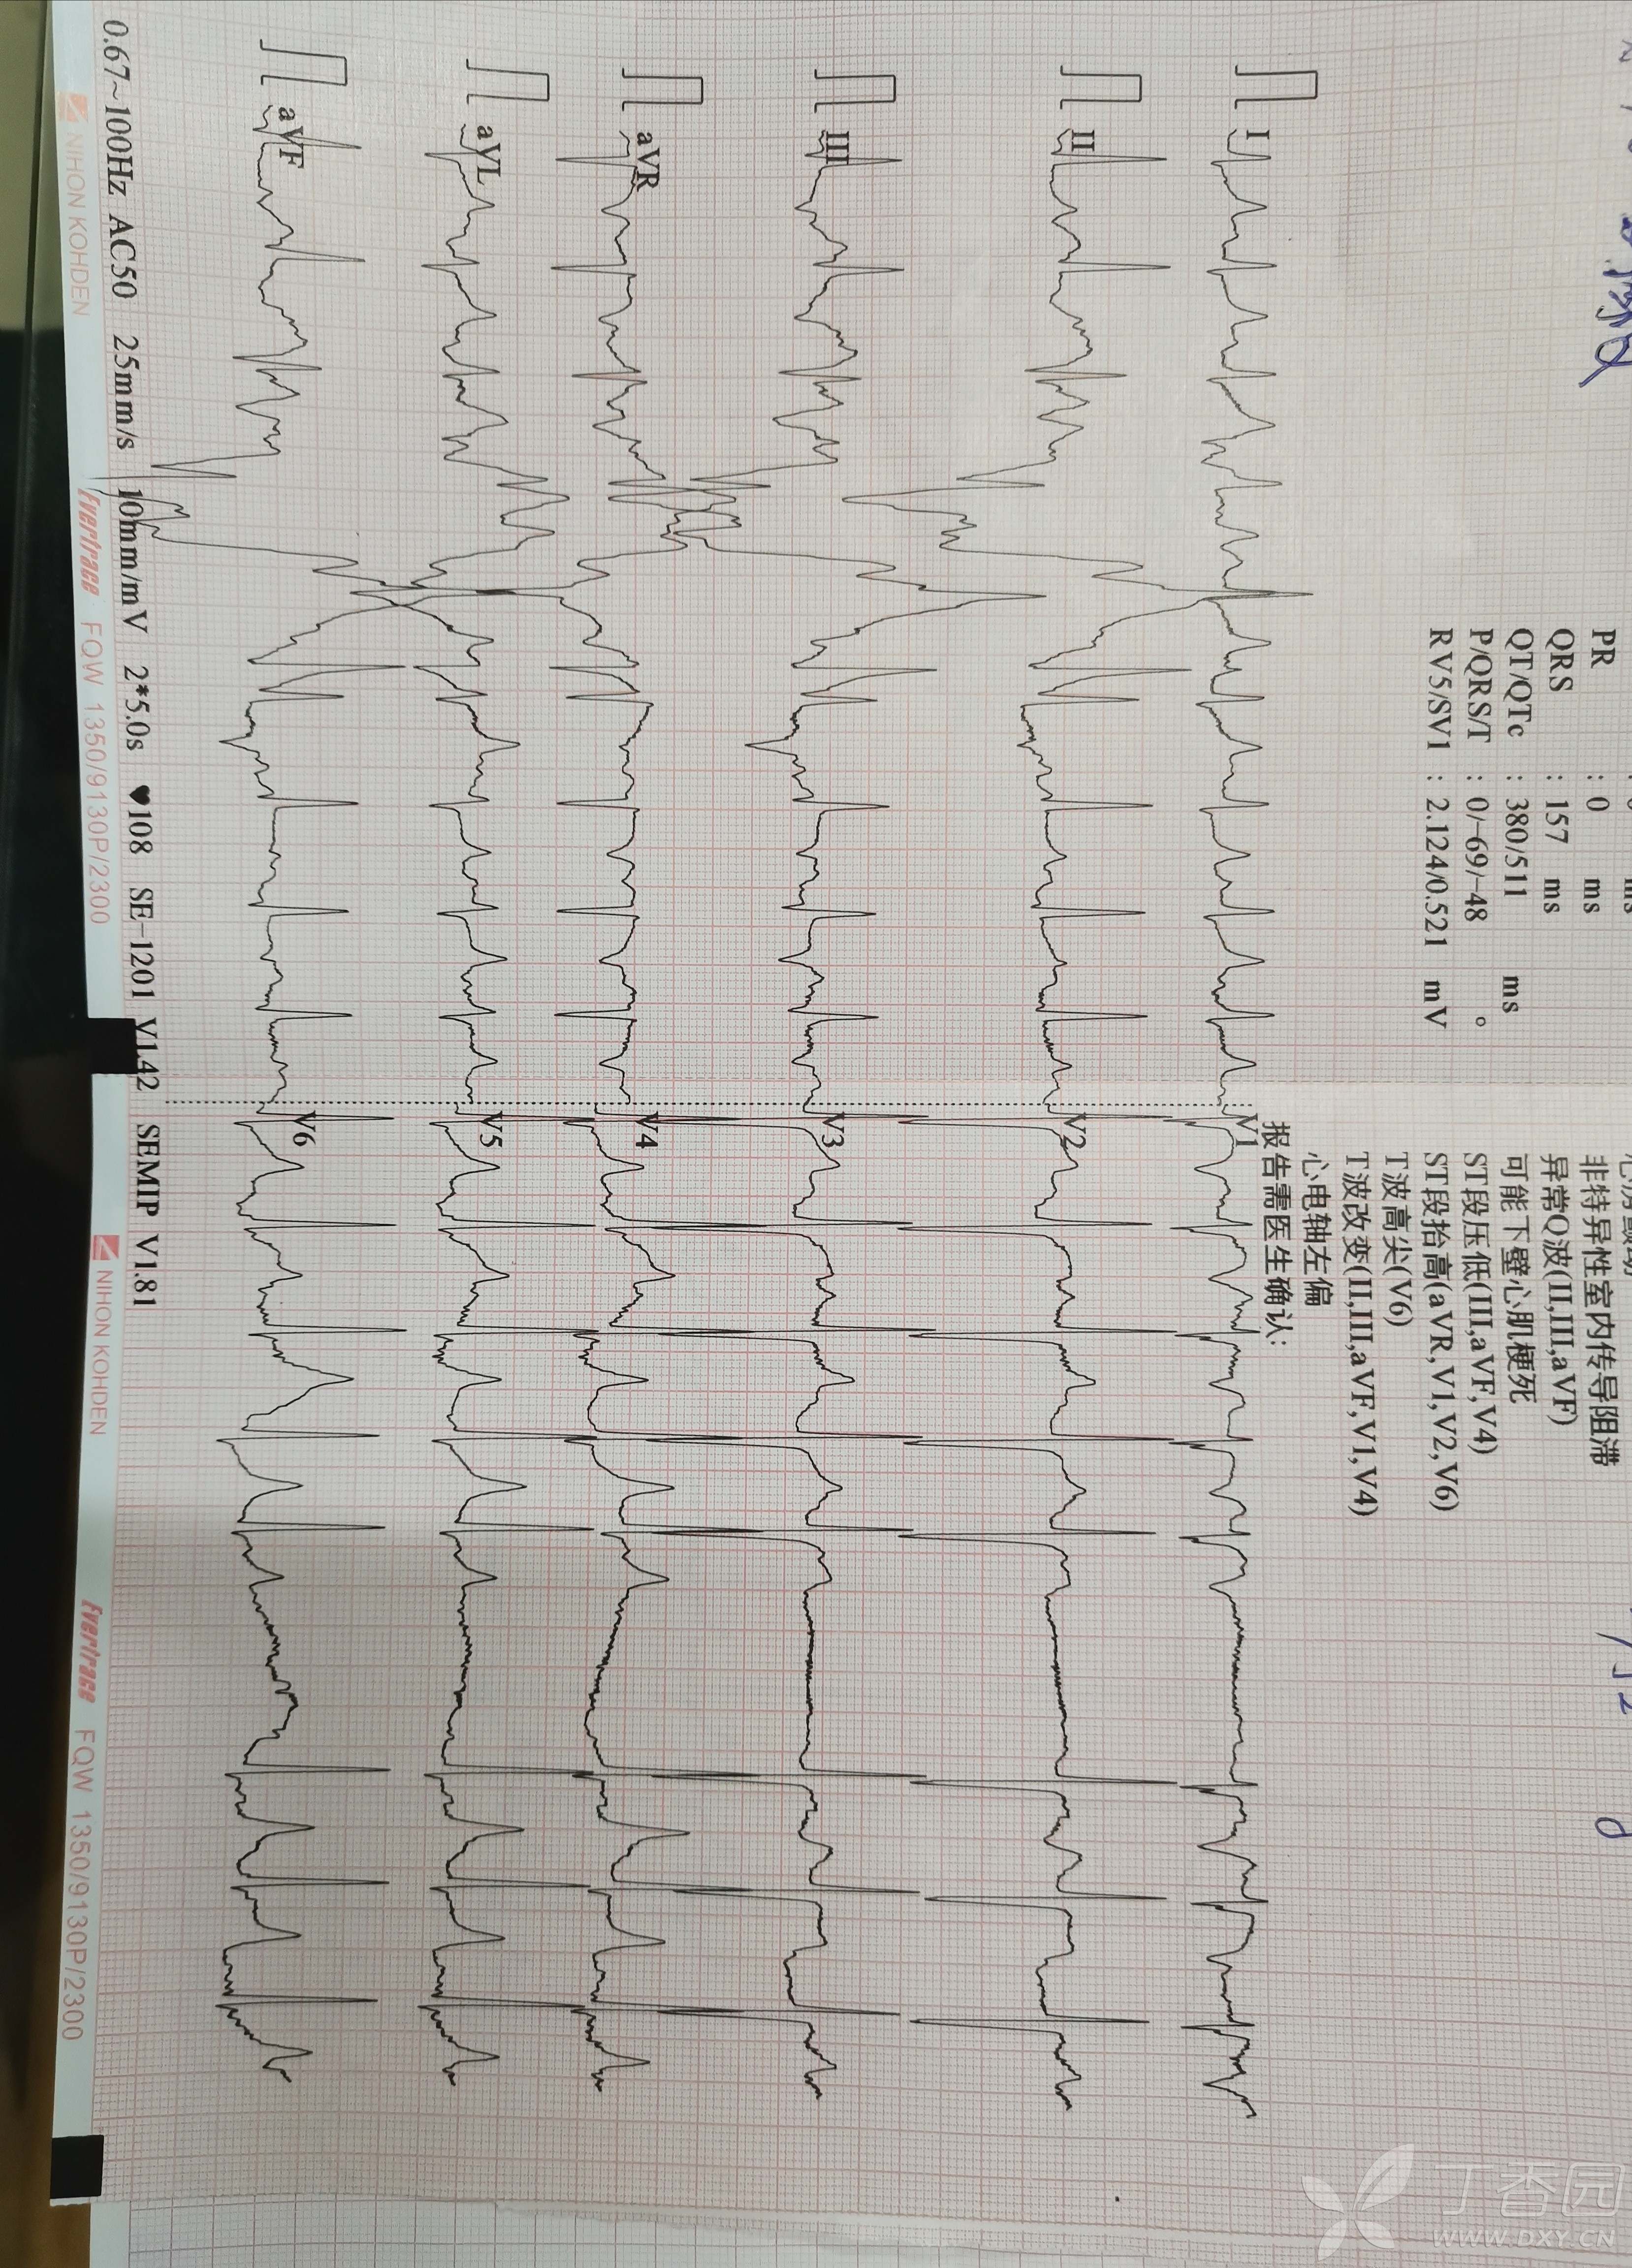 PR : 0 ms
QRS : 157 ms
QT/QTc : 380/511 ms
P/QRS/T : 0/-69/-48 °
RV5/SV1 : 2.124/0.521 mV
非特异性室内传导阻滞
异常Q波(II,III,aVF)
可能下壁心肌梗死
ST段压低(III,aVF,V4)
ST段抬高(aVR,V1,V2,V6)
T波高尖(V6)
T波改变(II,III,aVF,V1,V4)
心电轴左偏
报告需医生确认:
I
V1
II
V2
III
V3
aVR
V4
aVL
V5
aVF
V6
0.67~100Hz AC50 25mm/s 10mm/mV 2*5.0s ♥108 SE-1201 V1.42 SEMIP V1.81
NIHON KOHDEN Evertrace FQW 1350/9130P/2300
NIHON KOHDEN Evertrace FQW 1350/9130P/2300
丁香园
WWW.DXY.CN